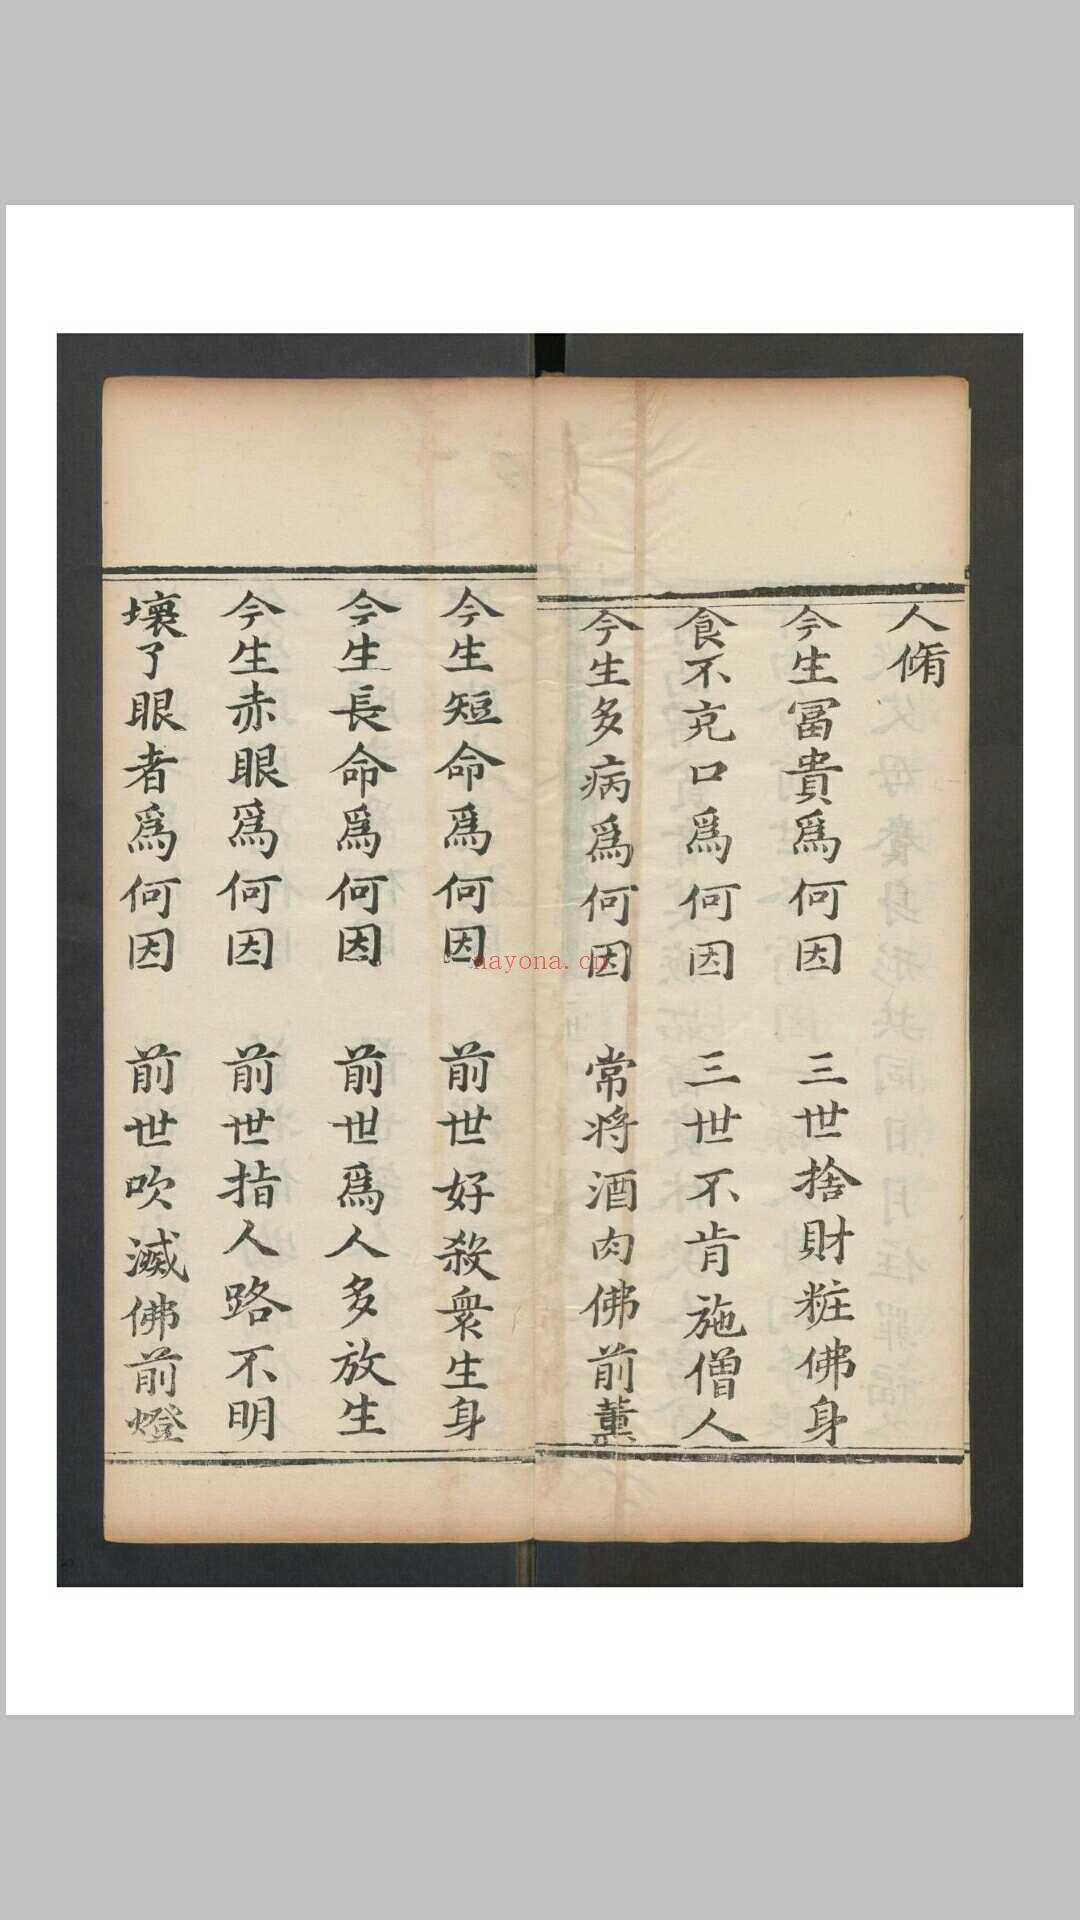 人脩
今生冨貴爲何因　三世捨財粧佛身
食不充口爲何因　三世不肯施僧人
今生多病爲何因　常將酒肉佛前薫
今生短命爲何因　前世好殺衆生身
今生長命爲何因　前世爲人多放生
今生赤眼爲何因　前世指人路不明
壞了眼者爲何因　前世吹滅佛前燈
nayona.cn